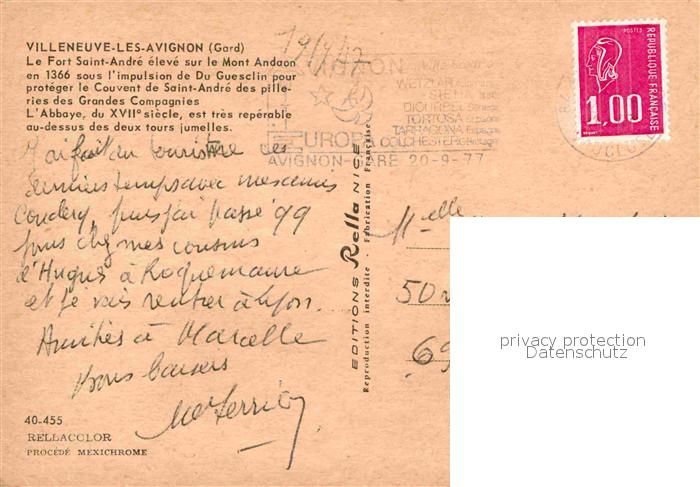 VILLENEUVE-LES-AVIGNON (Gard)
Le Fort Saint-André élevé sur le Mont Andaon
en 1366 sous l'impulsion de Du Guesclin pour
protéger le Couvent de Saint-André des pille-
ries des Grandes Compagnies
L'Abbaye, du XVIIe siècle, est très repérable
au-dessus des deux tours jumelles.
J'ai fait du tourisme ces
derniers temps avec mes amis
Couderq, puis j'ai passé 99
jours chez mes cousins
d'Hugues à Roquemaure
et je vais rentrer à Lyon.
Amitiés à Marcelle
Bons baisers
40-455
RELLACOLOR
PROCÉDÉ MEXICHROME
EDITIONS Rella NICE
Reproduction interdite - Fabrication Française
WETZLAR
DIOURBEL Sénégal
TORTOSA Espagne
TARRAGONA Espagne
EUROPE COLCHESTER
AVIGNON-GARE 20-9-77
POSTES
REPUBLIQUE FRANÇAISE
1,00
Melle
50
69
privacy protection
Datenschutz